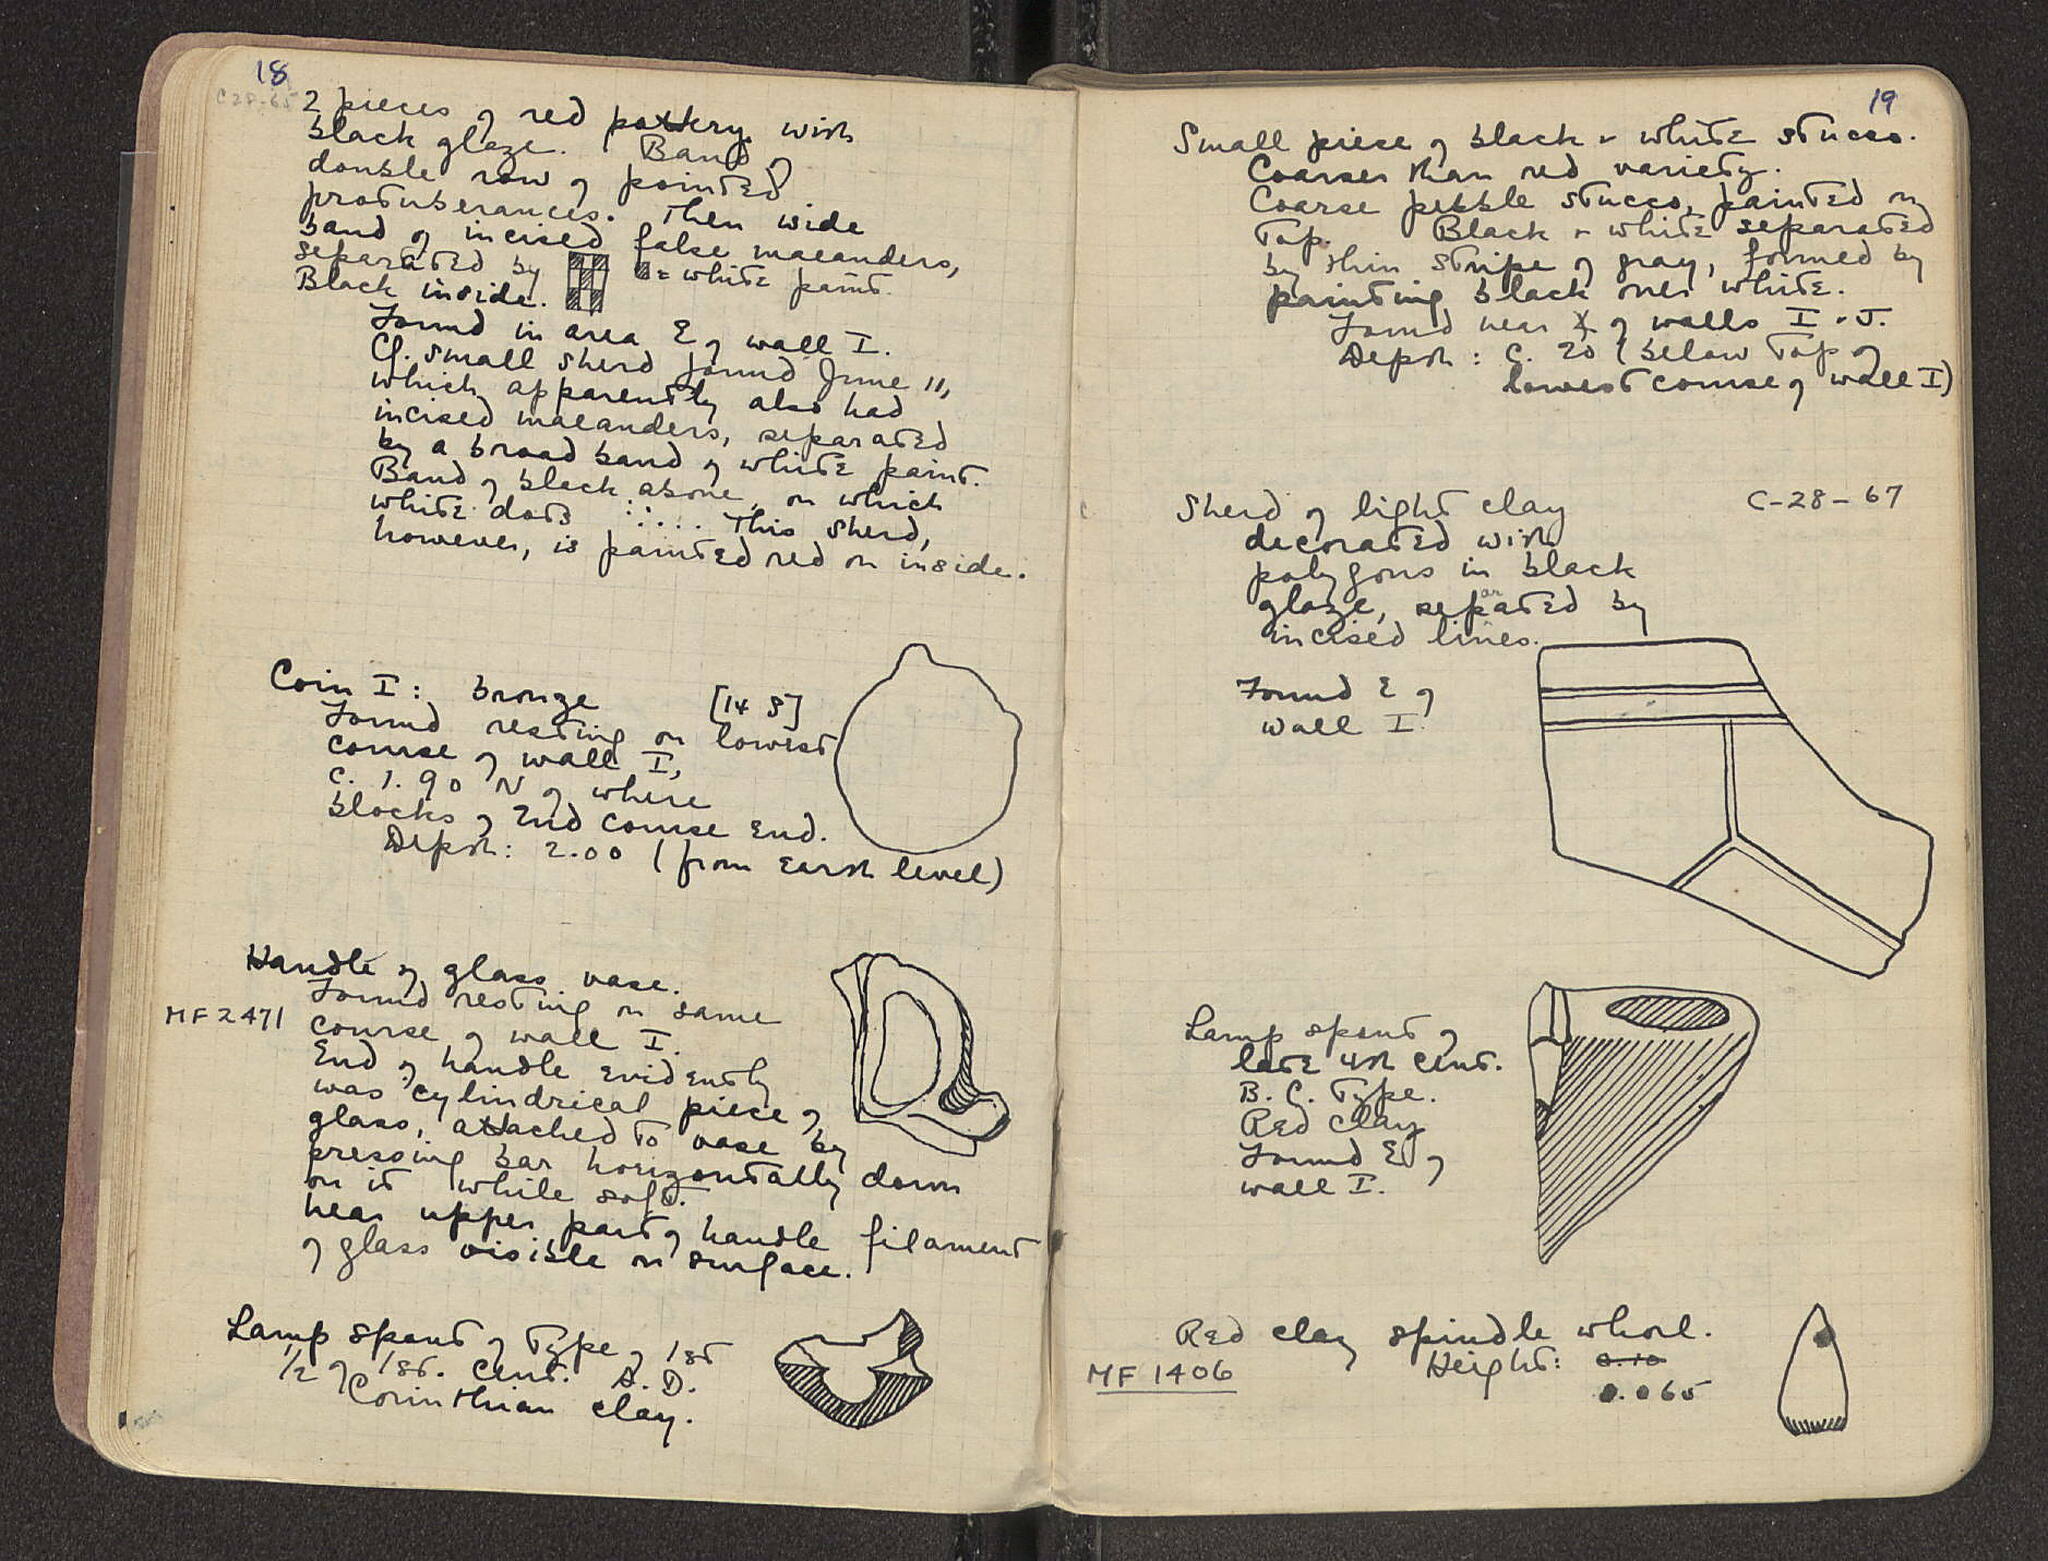 18
C28-65
2 pieces of red pottery with
black glaze. Band of
double row of pointed
protuberances. Then wide
band of incised false maeanders,
separated by = white paint.
Black inside.
Found in area E of wall I.
Cf. small sherd found June 11,
which apparently also had
incised maeanders, separated
by a broad band of white paint.
Band of black above, on which
white dots :·:··. This sherd,
however, is painted red on inside.
Coin I: bronze [14 S]
Found resting on lowest
course of wall I,
c. 1.90 N of where
blocks of 2nd course end.
Depth: 2.00 (from earth level)
Handle of glass vase.
MF 2471
Found resting on same
course of wall I.
End of handle evidently
was cylindrical piece of
glass, attached to vase by
pressing bar horizontally down
on it while soft.
Near upper part of handle filament
of glass visible on surface.
Lamp spout of type of 1st
1/2 of 1st. cent. A.D.
Corinthian clay.
19
Small piece of black + white stucco.
Coarser than red variety.
Coarse pebble stucco, painted on
top. Black + white separated
by thin stripe of gray, formed by
painting black over white.
Found near of walls I + J.
Depth: c. 20 (below top of
lowest course of wall I)
Sherd of light clay C-28-67
decorated with
polygons in black
glaze, separated by
incised lines.
Found E of
wall I.
Lamp spout of
late 4th cent.
B.C. type.
Red clay
Found E of
wall I.
Red clay spindle whorl.
MF 1406 Height: 0.10
0.065